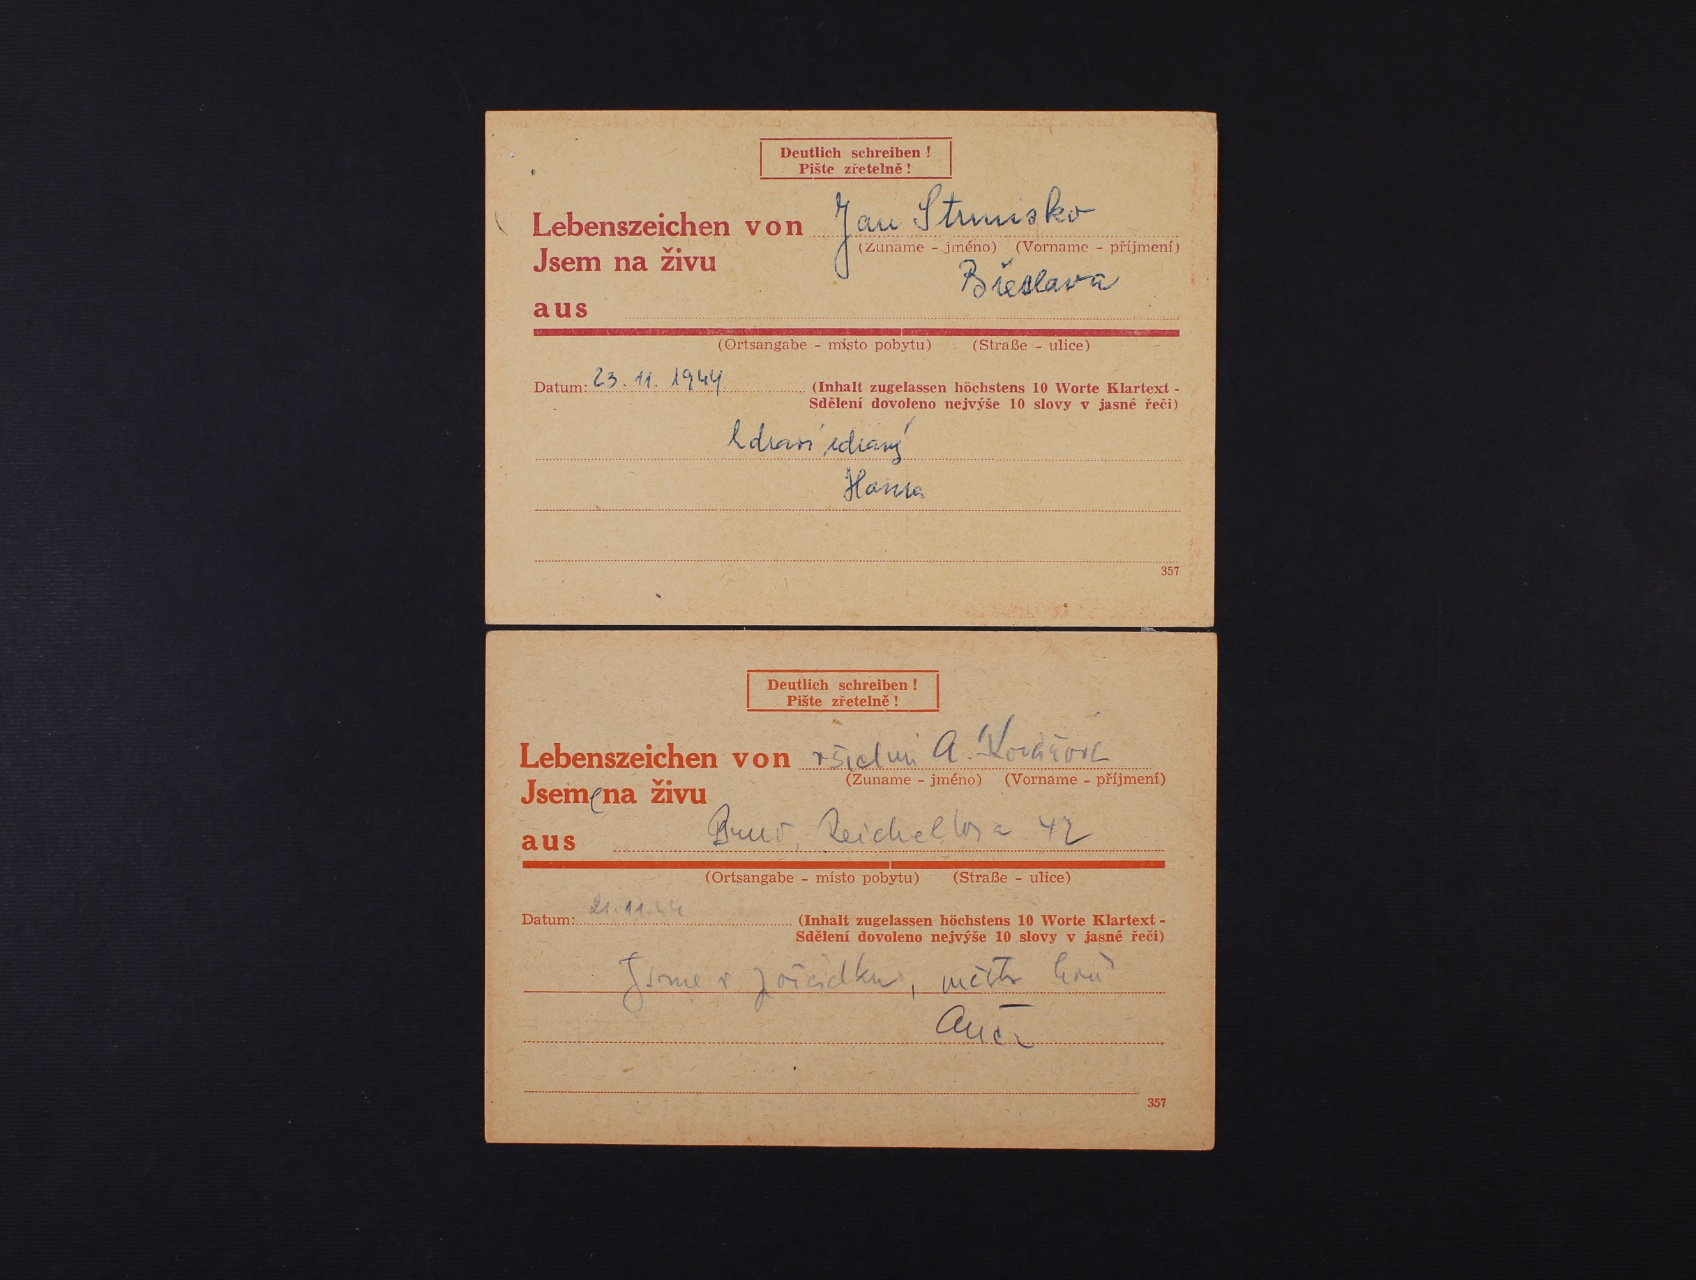 Deutlich schreiben !
Pište zřetelně !
Lebenszeichen von Jan Strnisko
(Zuname - jméno) (Vorname - příjmení)
Jsem na živu
Břeclava
aus
(Ortsangabe - místo pobytu) (Straße - ulice)
Datum: 23. 11. 1944 (Inhalt zugelassen höchstens 10 Worte Klartext -
Sdělení dovoleno nejvýše 10 slovy v jasné řeči)
Zdraví zdravý
357
Deutlich schreiben !
Pište zřetelně !
Lebenszeichen von všichni A. Kovářová
(Zuname - jméno) (Vorname - příjmení)
Jsem na živu
aus Brno, 42
(Ortsangabe - místo pobytu) (Straße - ulice)
Datum: 21.11.44 (Inhalt zugelassen höchstens 10 Worte Klartext -
Sdělení dovoleno nejvýše 10 slovy v jasné řeči)
Jsme v pořádku,
357